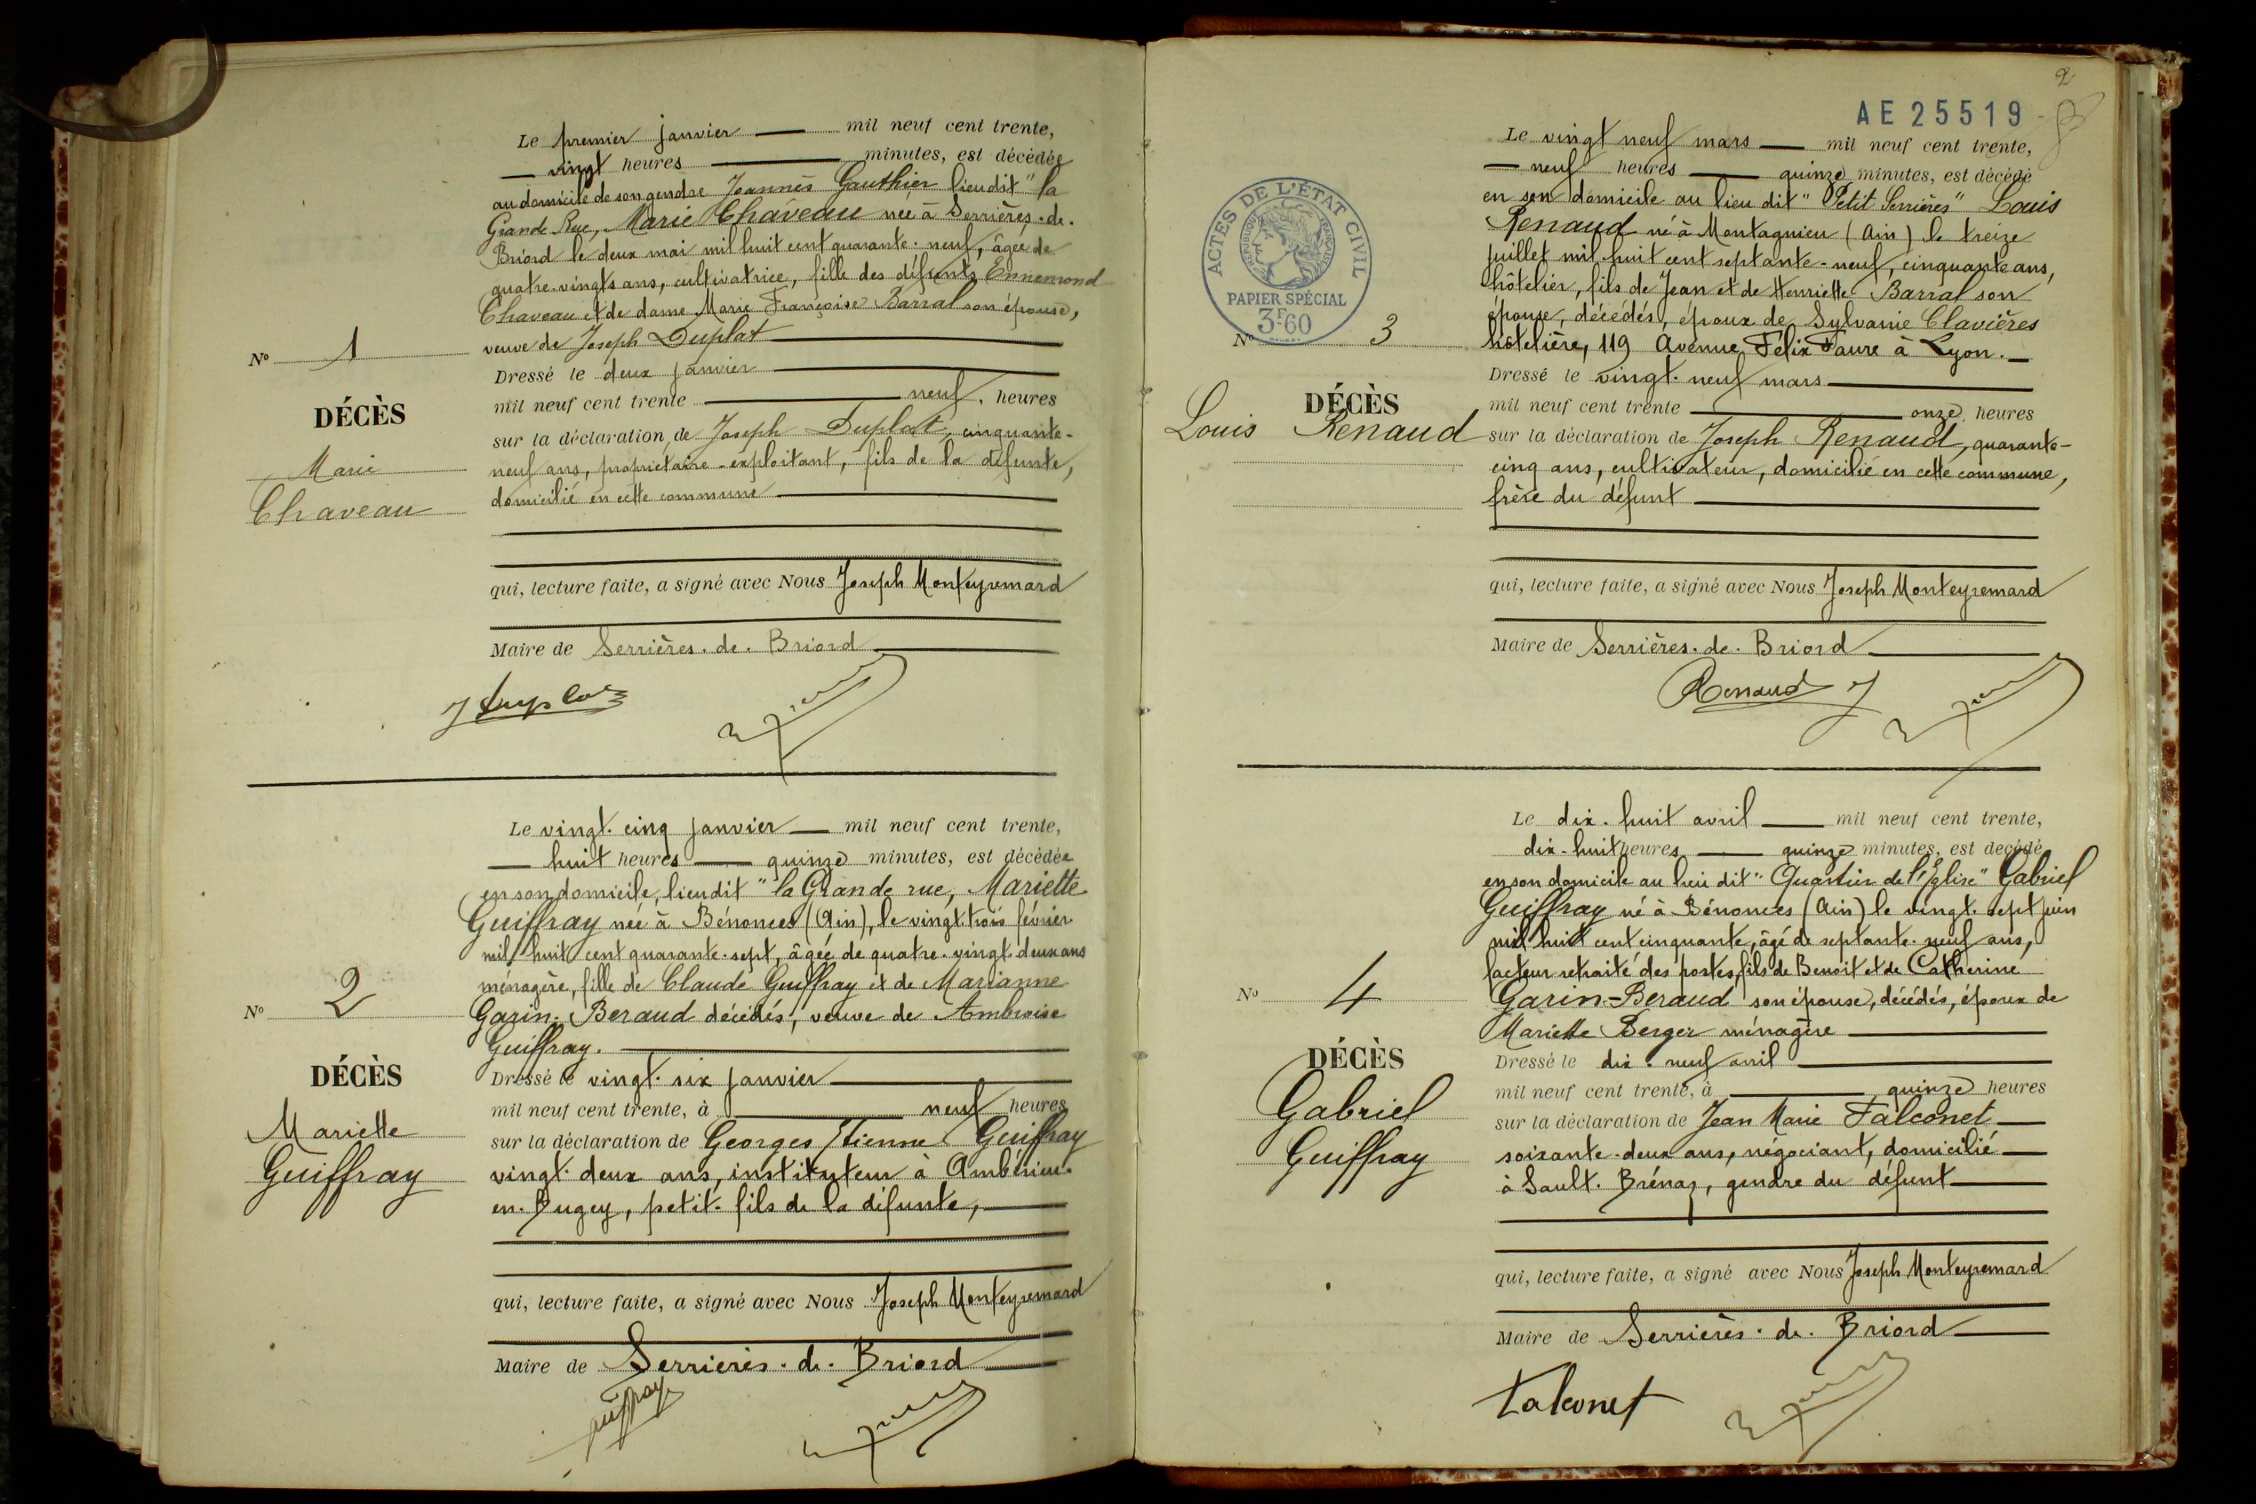 Le premier janvier mil neuf cent trente,
vingt heures minutes, est décédée
au domicile de son gendre Joannès Gauthier lieu dit "la
Grande Rue, Marie Chaveau née à Serrières-de-
Briord le deux mai mil huit cent quarante-neuf, âgée de
quatre-vingts ans, cultivatrice, fille des défunts Ennemond
Chaveau et de dame Marie Françoise Barral son épouse,
veuve de Joseph Duplat
Dressé le deux janvier
mil neuf cent trente neuf heures
sur la déclaration de Joseph Duplat, cinquante-
neuf ans, propriétaire-exploitant, fils de la défunte,
domicilié en cette commune
qui, lecture faite, a signé avec Nous Joseph Monteyremard
Maire de Serrières-de-Briord
J Duplat
N° 1
DÉCÈS
Marie
Chaveau
Le vingt-cinq janvier mil neuf cent trente,
huit heures quinze minutes, est décédée
en son domicile, lieu dit "la Grande rue, Mariette
Guiffray née à Bénonces (Ain), le vingt-trois février
mil huit cent quarante-sept, âgée de quatre-vingt-deux ans
ménagère, fille de Claude Guiffray et de Marianne
Garin-Beraud décédés, veuve de Ambroise
Guiffray.
Dressé le vingt-six janvier
mil neuf cent trente, à neuf heures
sur la déclaration de Georges Etienne Guiffray
vingt-deux ans, instituteur à Ambérieu-
en-Bugey, petit-fils de la défunte,
qui, lecture faite, a signé avec Nous Joseph Monteyremard
Maire de Serrières-de-Briord
Guiffray
N° 2
DÉCÈS
Mariette
Guiffray
2
AE 25519
Le vingt neuf mars mil neuf cent trente,
neuf heures quinze minutes, est décédé
en son domicile au lieu dit "Petit Serrières" Louis
Renaud né à Montagnieu (Ain) le treize
juillet mil-huit cent septante-neuf, cinquante ans,
hôtelier, fils de Jean et de Henriette Barral son
épouse, décédés, époux de Sylvanie Clavières
hôtelière, 119 Avenue Félix Faure à Lyon.
Dressé le vingt-neuf mars
mil neuf cent trente onze heures
sur la déclaration de Joseph Renaud, quarante-
cinq ans, cultivateur, domicilié en cette commune,
frère du défunt
qui, lecture faite, a signé avec Nous Joseph Monteyremard
Maire de Serrières-de-Briord
Renaud J
ACTES DE L'ÉTAT CIVIL
RÉPUBLIQUE FRANÇAISE
PAPIER SPÉCIAL
3F60
N° 3
DÉCÈS
Louis Renaud
Le dix-huit avril mil neuf cent trente,
dix-huit heures quinze minutes, est décédé
en son domicile au lieu dit "Quartier de l'Eglise" Gabriel
Guiffray né à Bénonces (Ain) le vingt-sept juin
mil-huit cent cinquante, âgé de septante-neuf ans,
facteur retraité des postes, fils de Benoit et de Catherine
Garin-Beraud son épouse, décédés, époux de
Mariette Berger ménagère
Dressé le dix-neuf avril
mil neuf cent trente, à quinze heures
sur la déclaration de Jean Marie Falconet
soixante-deux ans, négociant, domicilié
à Sault-Brénaz, gendre du défunt
qui, lecture faite, a signé avec Nous Joseph Monteyremard
Maire de Serrières-de-Briord
Falconet
N° 4
DÉCÈS
Gabriel
Guiffray